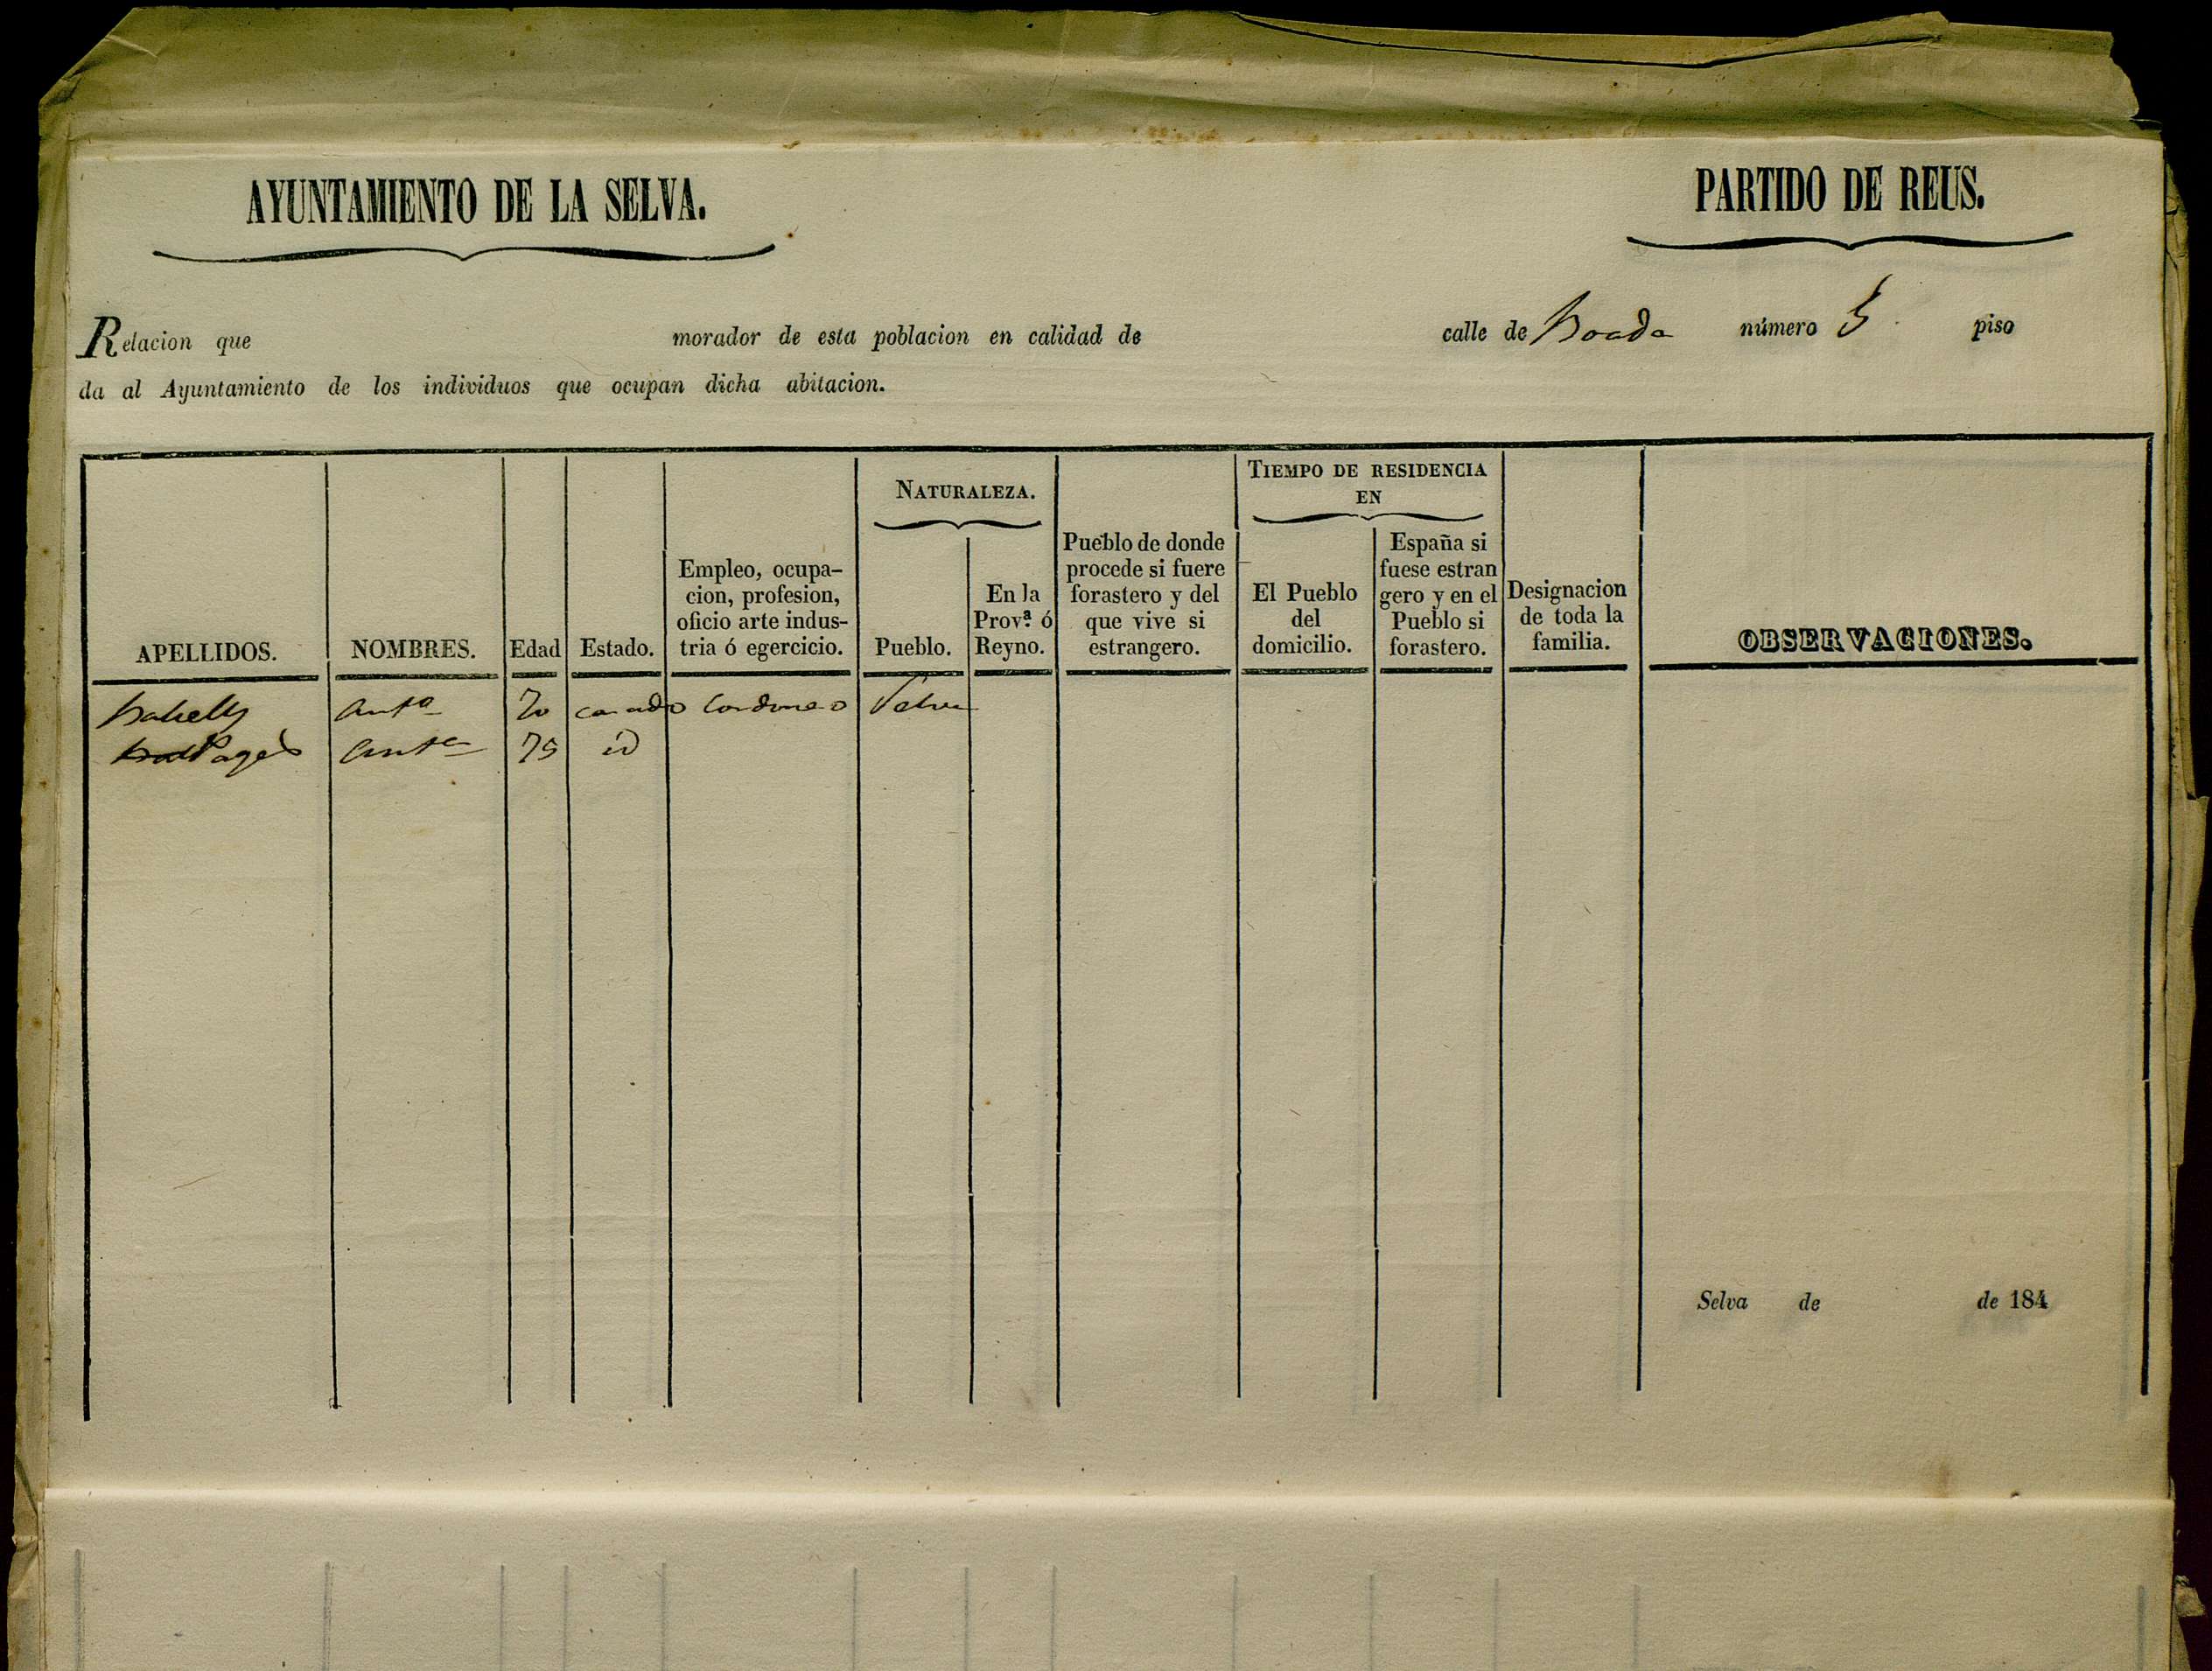 AYUNTAMIENTO DE LA SELVA.
PARTIDO DE REUS.
Relacion que morador de esta poblacion en calidad de calle de Boada número 5 piso
da al Ayuntamiento de los individuos que ocupan dicha abitacion.
NATURALEZA.
TIEMPO DE RESIDENCIA
EN
APELLIDOS.
NOMBRES.
Edad
Estado.
Empleo, ocupa-
cion, profesion,
oficio arte indus-
tria ó egercicio.
Pueblo.
En la
Prov.ª ó
Reyno.
Pueblo de donde
procede si fuere
forastero y del
que vive si
estrangero.
El Pueblo
del
domicilio.
España si
fuese estran
gero y en el
Pueblo si
forastero.
Designacion
de toda la
familia.
OBSERVACIONES.
Ant.º 70 casado Cordonero Selva
Pages Ant.ª 75 id
Selva de de 184